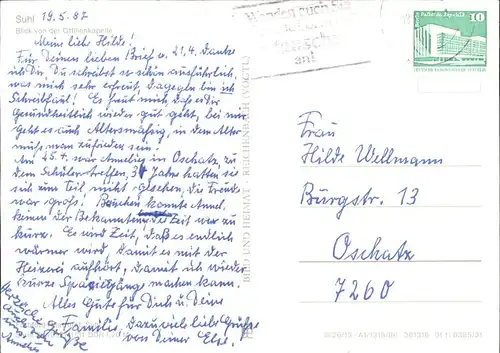 Suhl 19.5.87
Blick von der Ottilienkapelle
Meine liebe Hilde!
Für Deinen lieben Brief v. 21.4. danke
ich Dir. Du schreibst so schön ausführlich,
was mich sehr erfreut. Dagegen bin ich
Schreibfaul! Es freut mich, daß es Dir
Gesundheitlich wieder gut geht, bei mir
geht es auch Altersmäßig, in dem Alter
muß man zufrieden sein.
Am 25.4. war Annelies in Oschatz, zu
dem Schülertreffen, 31 Jahre hatten sie
sich zum Teil nicht gesehen, die Freude
war groß. Besuchen konnte Annel.
keinen der Bekannten die Zeit war zu
kurz. Es wird Zeit, daß es endlich
wärmer wird, damit es mit der
Heizerei aufhört, damit ich wieder
kurze Spaziergänge machen kann.
Alles Gute für Dich u. Deine
Familie. Dazu viele liebe Grüße
von Deiner Else.
Herzliche Grüße
auch von
Annelies
BILD UND HEIMAT REICHENBACH (VOGTL)
Wenden auch Sie
an!
10
Frau
Hilde Wellmann
Burgstr. 13
Oschatz
7260